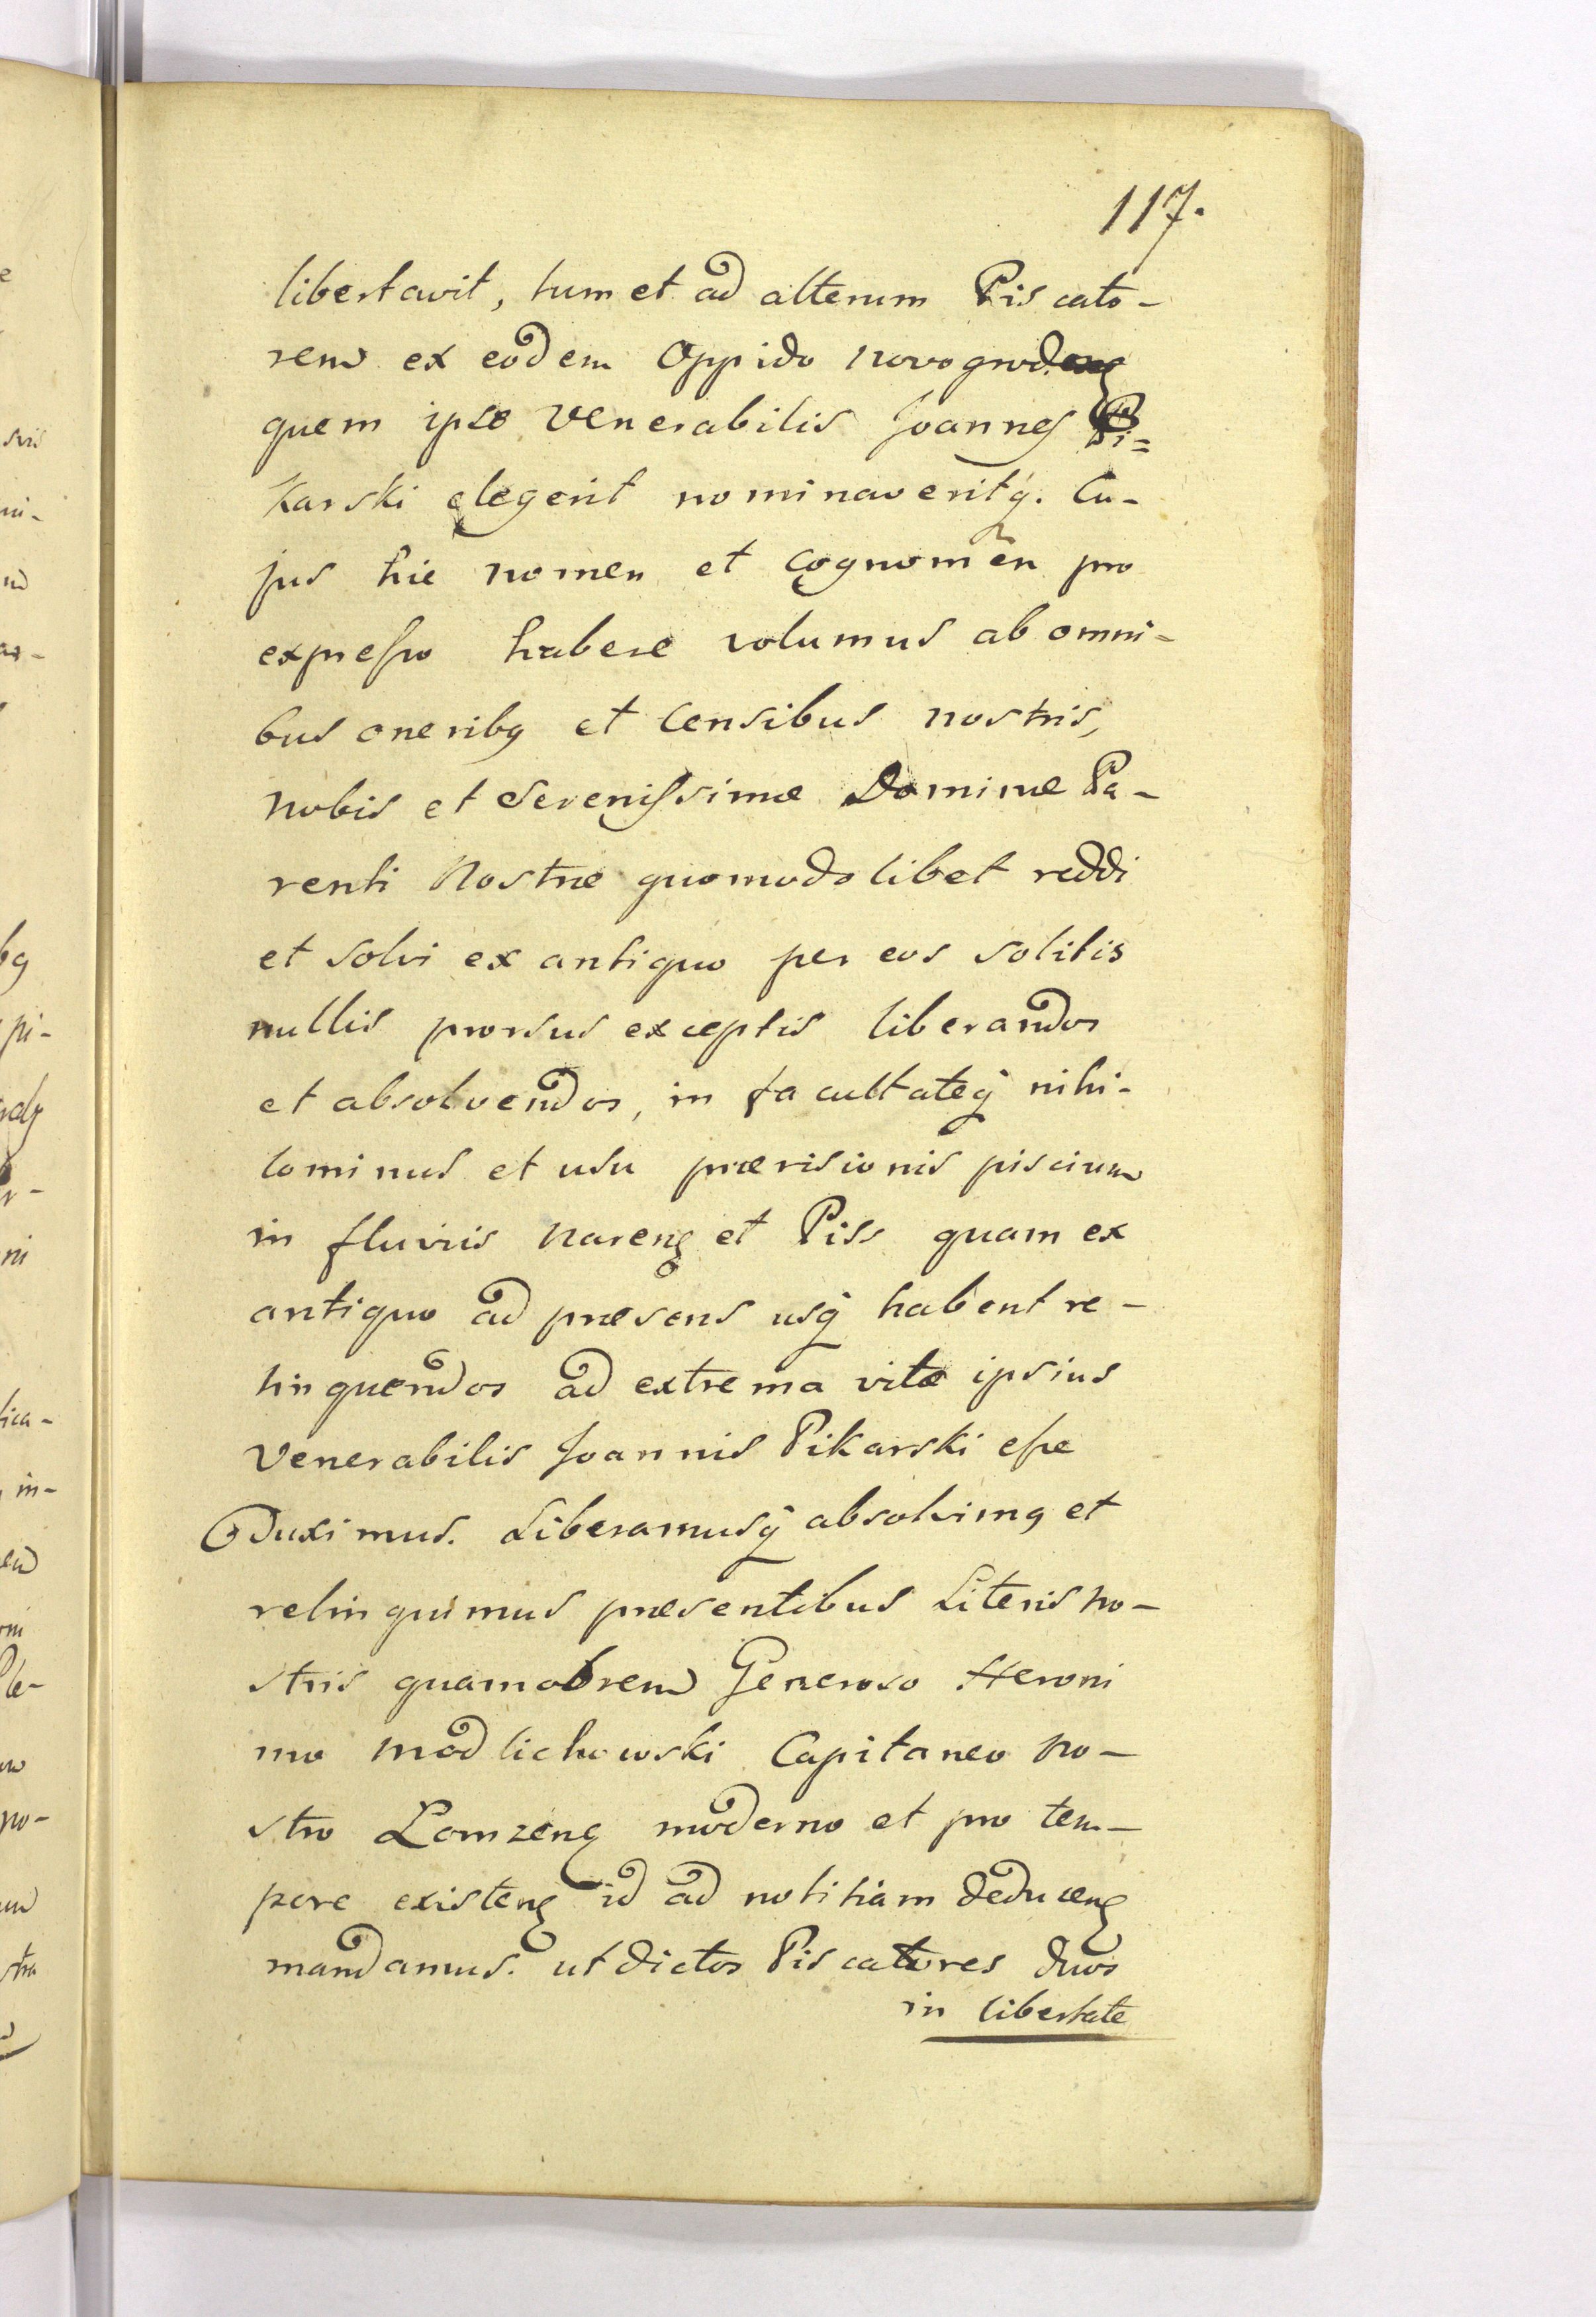 117.
libertavit, tum et ad alterum Piscato-
rem ex eodem Oppido Novogrodens
quem ipse Venerabilis Joannes Pi=
Karski elegerit nominaveritq. Cu-
jus hic nomen et cognomen pro
expresso habere volumus ab omni-
bus oneribq et Censibus nostris,
nobis et Serenissimæ Dominæ Pa-
renti Nostræ quomodolibet reddi
et solvi ex antiquo per eos solitis
nullis prorsus exceptis liberandos
et absolvendos, in facultateq nihi-
lominus et usu prævisionis piscium
in fluviis Nareng et Piss quam ex
antiquo ad præsens usq habent re-
linquendos ad extrema vitæ ipsius
Venerabilis Joannis Pikarski esse
Duximus. Liberamusq absolvimq et
relinquimus præsentibus Literis no-
stris quamobrem Generoso Heroni
mo Modlichowski Capitaneo no-
stro Lomzeng moderno et pro tem-
pore existeng id ad notitiam deduceng
mandamus. ut dictos Piscatores duos
in libertate